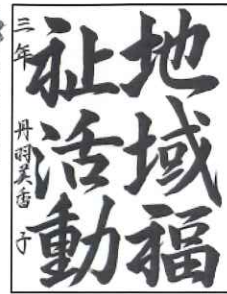 地域福
祉活動
三年 丹羽美香子